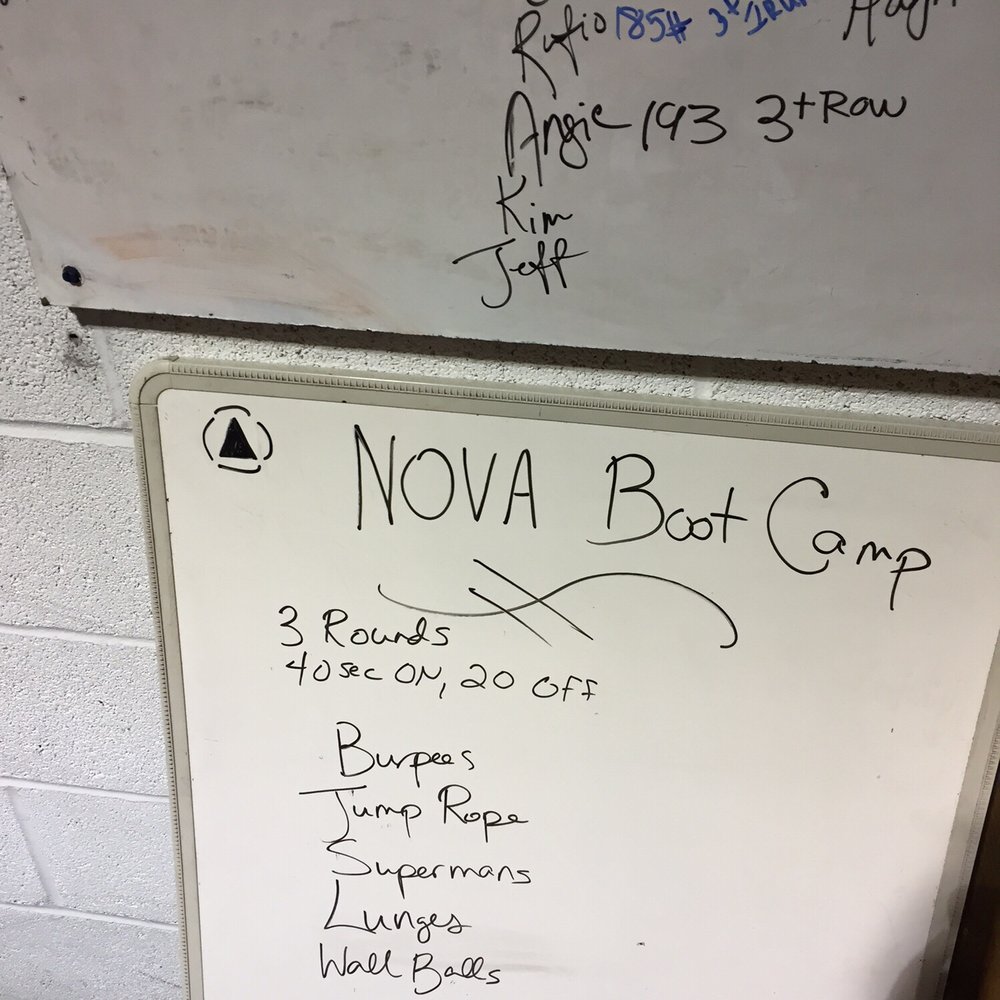 Rufio 185# 3+1Run
Angie 193 3+Row
Kim
Jeff
NOVA Boot Camp
3 Rounds
40sec ON, 20 OFF
Burpees
Jump Rope
Supermans
Lunges
Wall Balls